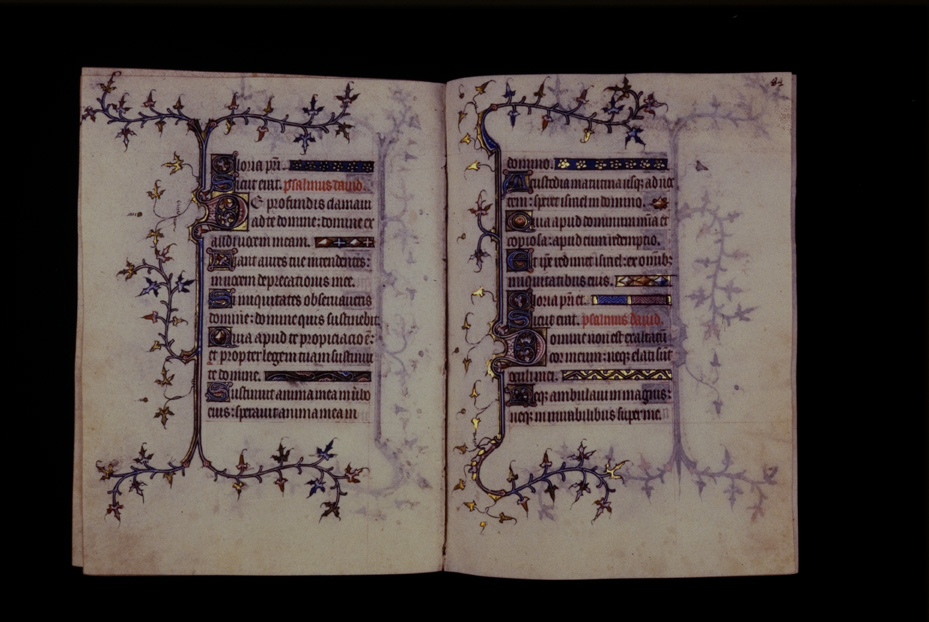 Gloria pr̃i.
Sicut erat. psalmus david.
De profundis clamavi
ad te domine: domine ex
audi vocem meam.
Fiant aures tue intendentes:
in vocem deprecationis mee.
Si iniquitates observaveris
domine: domine quis sustinebit
Quia apud te propiciacio ē:
et propter legem tuam sustinui
te domine.
Sustinuit anima mea in v̄bo
eius: speravit anima mea in
domino.
A custodia matutina usq; ad noc
tem: speret isrl̃ in domino.
Quia apud dominum mĩa et
copiosa: apud eum redemptio.
Et ip̃e redimet isrl̃: ex omnib;
iniquitatibus eius.
Gloria pr̃i et.
Sicut erat. psalmus david.
Domine non est exaltatū
cor meum: neq; elati sūt
oculi mei.
Neq; ambulavi in magnis:
neq; in mirabilibus super me.